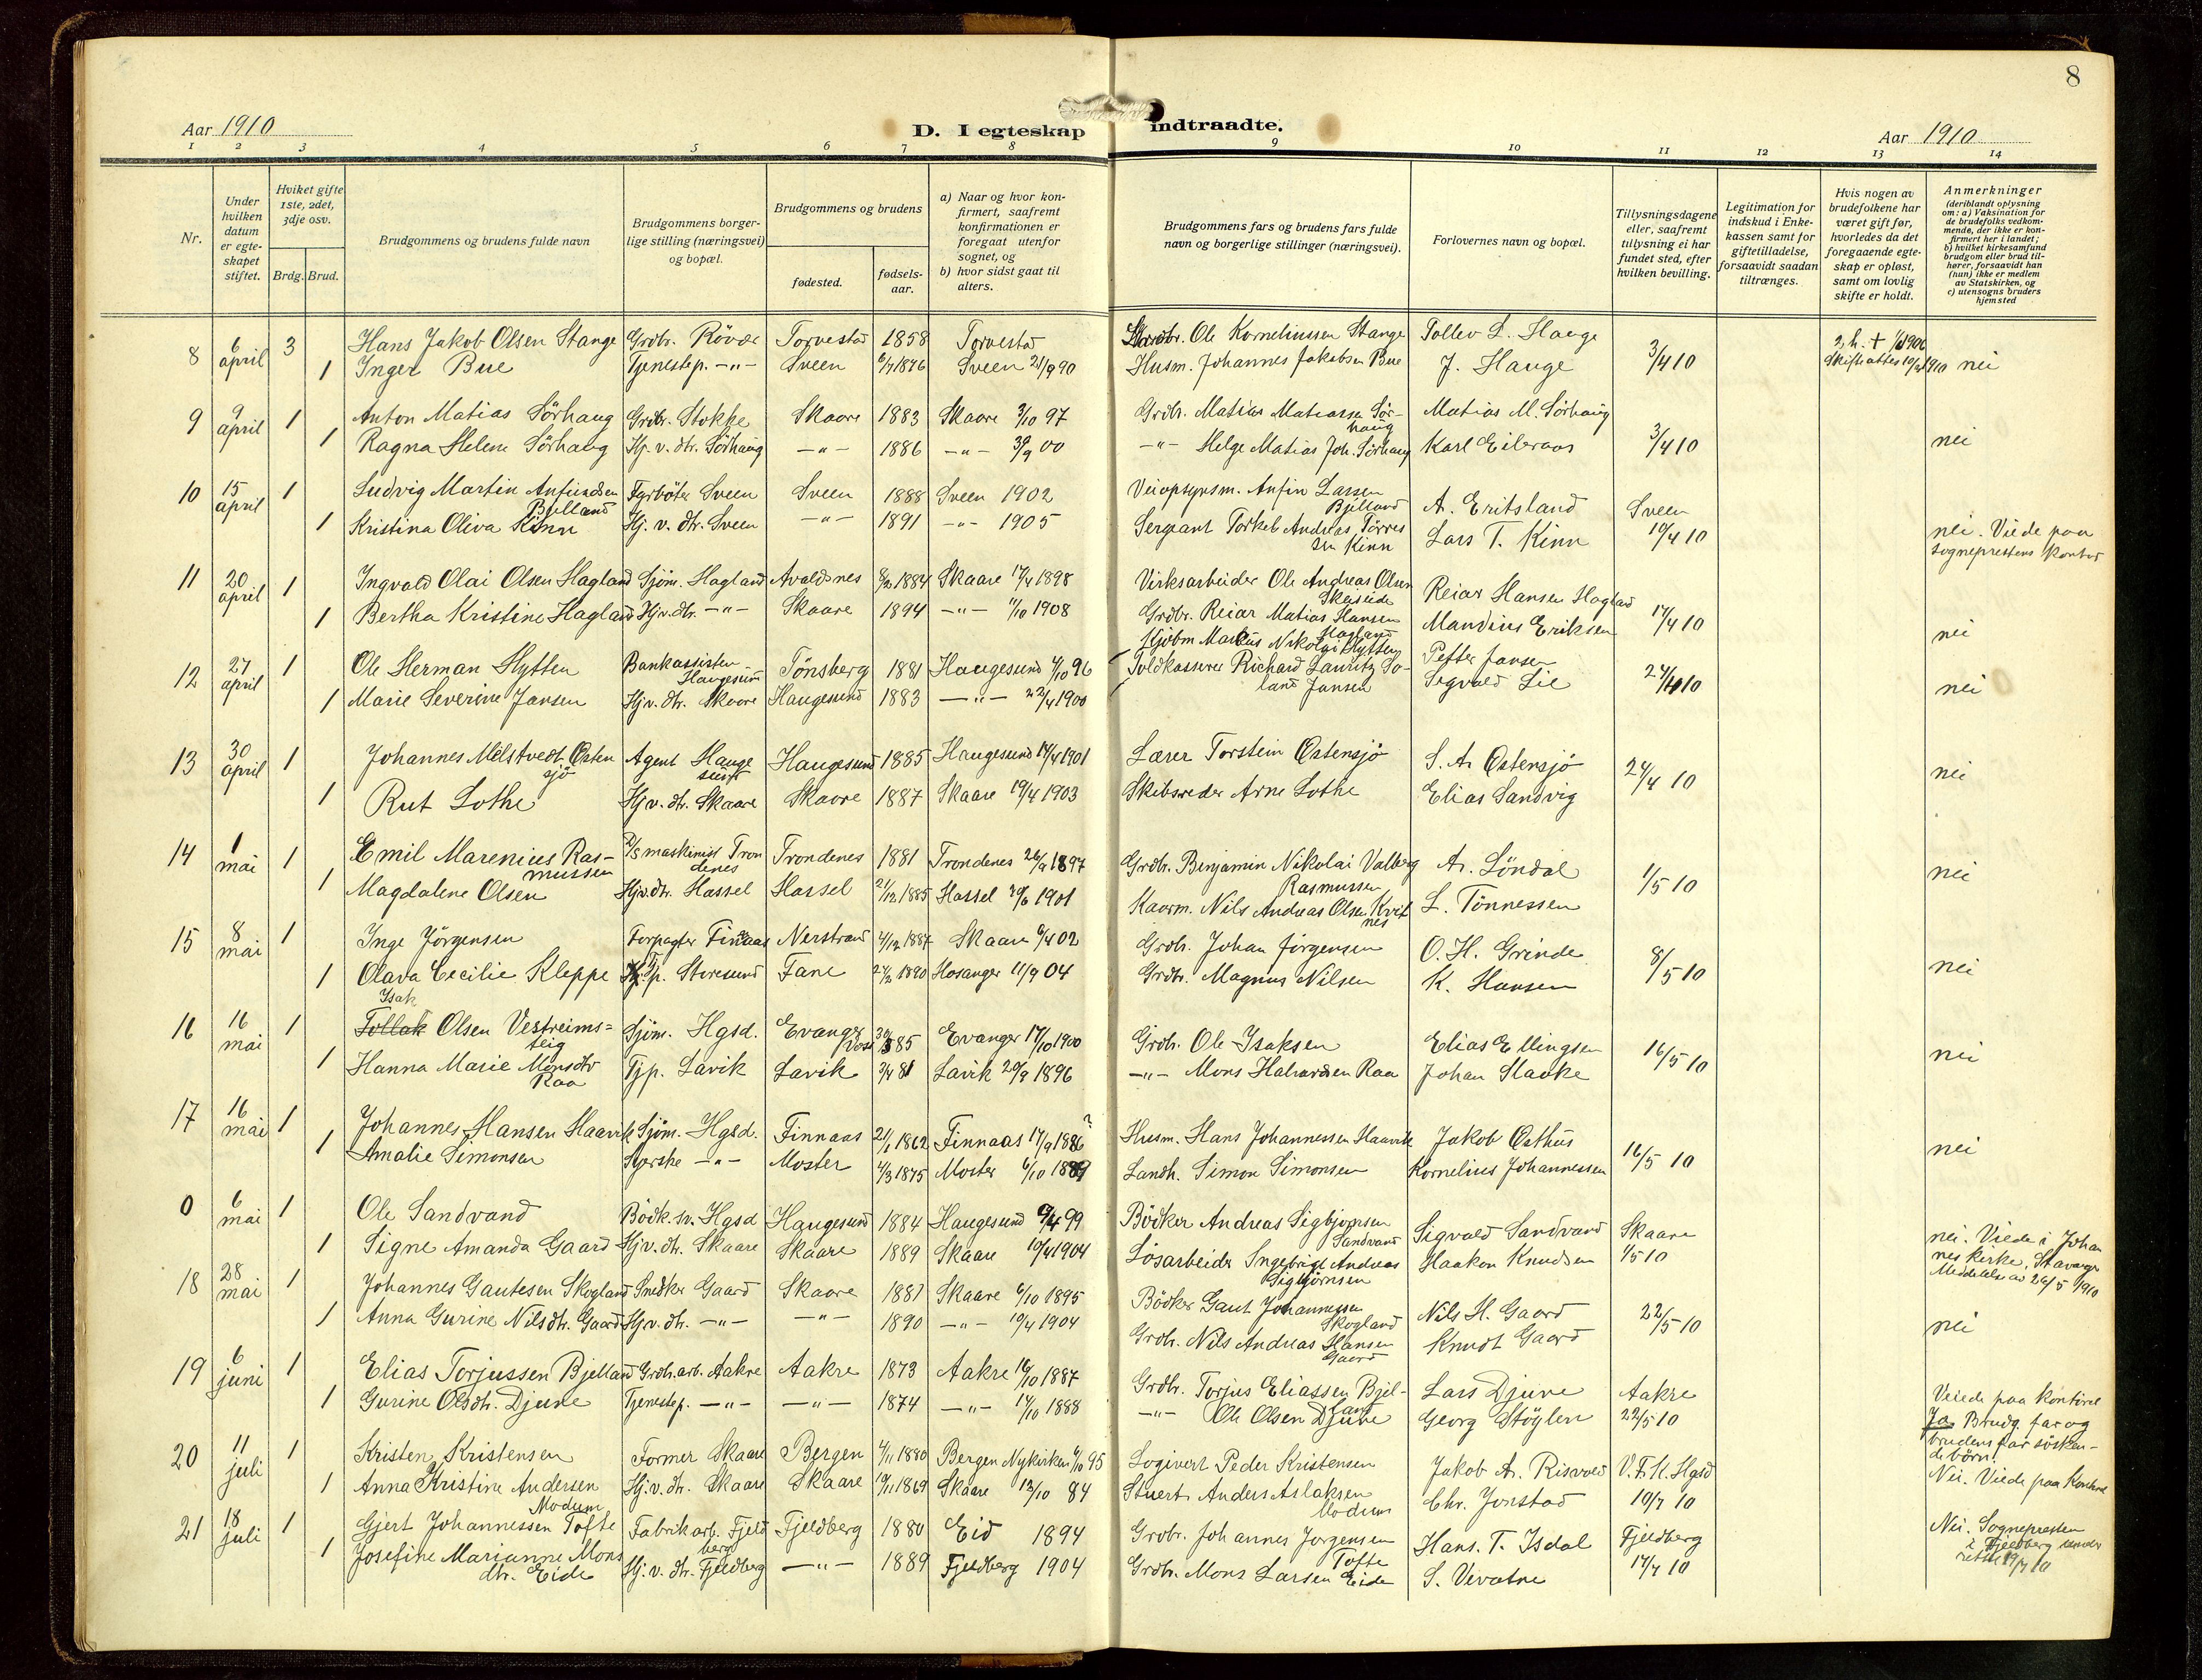 8
Aar 1910
D. I egteskap indtraadte.
Aar 1910
1 2 3 4 5 6 7 8 9 10 11 12 13 14
Nr.
Under hvilken datum er egte- skapet stiftet.
Hviket gifte 1ste, 2det, 3dje osv.
Brdg. Brud.
Brudgommens og brudens fulde navn
Brudgommens borger- lige stilling (næringsvei) og bopæl.
Brudgommens og brudens
fødested.
fødsels- aar.
a) Naar og hvor kon- firmert, saafremt konfirmationen er foregaat utenfor sognet, og b) hvor sidst gaat til alters.
Brudgommens fars og brudens fars fulde navn og borgerlige stillinger (næringsvei).
Forlovernes navn og bopæl.
Tillysningsdagene eller, saafremt tillysning ei har fundet sted, efter hvilken bevilling.
Legitimation for indskud i Enke- kassen samt for giftetilladelse, forsaavidt saadan tiltrænges.
Hvis nogen av brudefolkene har været gift før, hvorledes da det foregaaende egte- skap er opløst, samt om lovlig skifte er holdt.
Anmerkninger (deriblandt oplysning om: a) Vaksination for de brudefolks vedkom- mende, der ikke er kon- firmert her i landet; b) hvilket kirkesamfund brudgom eller brud til- hører, forsaavidt han (hun) ikke er medlem av Statskirken, og c) utensogns bruders hjemsted
8 6 april 3 Hans Jakob Olsen Stange Grdbr. Rövær Torvestad 1858 Torvestad Ole Korneliussen Stange Tollev L. Hauge 3/4 10 nei
1 Inger Bue Tjenestep. -"- Sveen 1876 Sveen 21/9 90 Husm. Johannes Jakobsen Bue J. Hauge
9 9 april 1 Anton Matias Sörhaug Grdbr. Stokke Skaare 1883 Skaare 3/10 97 Grdbr. Matias Matiassen Sör- haug Matias M. Sörhaug 3/4 10 nei
1 Ragna Helene Sörhaug Hj. v. dtr. Sörhaug -"- 1886 -"- 30/9 00 -"- Helge Matias Joh. Sörhaug Karl Eileraas
10 15 april 1 Ludvig Martin Anfindsen Bjelland Fyrböter Sveen Sveen 1888 Sveen 1902 Veiopsynsm. Anfin Larsen Bjelland A. Eritsland Sveen 10/4 10 nei. Viede paa sogneprestens kontor
1 Kristina Oliva Kinn Hj. v. dtr. Sveen -"- 1891 -"- 1905 Sergeant Torkel Andreas Törres sen Kinn Lars T. Kinn
11 20 april 1 Ingvald Olai Olsen Hagland Sjöm. Hagland Avaldsnes 1884 Skaare 17/4 1898 Virksarbeider Ole Andreas Olsen Skeiseide Reiar Hansen Hagland 17/4 10 nei
1 Bertha Kristine Hagland Hj.v.dtr. -"- Skaare 1894 -"- 1/10 1908 Grdbr. Reiar Matias Hansen Hagland Mandius Eriksen
12 27 april 1 Ole Herman Hytten Bankassisten Haugesund Tönsberg 1881 Haugesund 4/10 96 Kjöbm Markus Nikolai Hytten Petter Jansen 24/4 10 nei
1 Marie Severine Jansen Hj v. dtr. Skaare Haugesund 1883 -"- 22/4 1900 Toldkasserer Richard Lauritz So- land Jansen Sigvald Lie
13 30 april 1 Johannes Mélstvedt Østen sjö Agent Hauge sund Haugesund 1885 Haugesund 14/4 1901 Lærer Torstein Østensjö S. A. Østensjö 24/4 10 nei
1 Rut Lothe Hj v. dtr. Skaare Skaare 1887 Skaare 19/4 1903 Skibsreder Arne Lothe Elias Sandvig
14 1 mai 1 Emil Marenius Ras- mussen D/S maskinist Tron denes Trondenes 1881 Trondenes 26/9 1897 Grdbr. Benjamin Nikolai Valberg Rasmussen A. Löndal 1/5 10 nei
1 Magdalene Olsen Hj.v.dtr. Hassel Hassel 21/12 1885 Hassel 30/6 1901 Kaarm. Nils Andreas Olsen Kvit nes L. Tönnessen
15 8 mai 1 Inge Jörgensen Forpagter Finnaas Nerstrand 4/12 1887 Skaare 6/4 02 Grdbr. Johan Jörgensen O. H. Grinde 8/5 10 nei
1 Olava Cecilie Kleppe Tjp. Storesund Fane 1880 Hosanger 11/9 04 Grdbr. Magnus Nilsen K. Hansen
16 16 mai 1 Isak Tollak Olsen Vestreims= teig Sjöm. Hgsd. Evanger Voss 85 Evanger 17/10 1900 Grdb. Ole Isaksen Elias Ellingsen 16/5 10 nei
1 Hanna Marie Monsdtr Raa Tjp. Lavik Lavik 3/4 81 Lavik 20/9 1896 -"- Mons Halvardsen Raa Johan Slaake
17 16 mai 1 Johannes Hansen Haavik Sjöm. Hgsd. Finnaas 21/1 1862 Finnaas 17/9 1886? Husm. Hans Johannessen Haavik Jakob Østhus 16/5 10 nei
1 Amalie Simonsen Syerske -"- Moster 4/3 1875 Moster 6/10 1889 Landh. Simon Simonsen Kornelius Johannessen
0 6 mai 1 Ole Sandvand Bödk.sv. Hgsd Haugesund 1884 Haugesund 9/4 99 Bödker Andreas Sigbjörnsen Sandvand Sigvald Sandvand Skaare 1/5 10 nei. Viede i Johan nes kirke, Stavanger Meddelelse av 26/5 1910
1 Signe Amanda Gaard Hj v. dtr. Skaare Skaare 1889 Skaare 10/4 1904 Lösarbeider Ingebrigt Andreas Sigbjörnsen Haakon Knudsen
18 28 mai 1 Johannes Gautesen Skogland Snedker Gaard Skaare 1881 Skaare 6/10 1895 Bödker Gaut Johannessen Skogland Nils H. Gaard 22/5 10 nei
1 Anna Gurine Nilsdtr. Gaard Hj v. dtr. -"- -"- 1890 -"- 10/4 1904 Grdb. Nils Andreas Hansen Gaard Knudt Gaard
19 6 juni 1 Elias Torjussen Bjelland Grdb.arb. Aakre Aakre 1873 Aakre 16/10 1887 Grdb. Torjus Eliassen Bjel- land Lars Djuve Aakre 22/5 10 Veiede paa kontoret Ja Brudg. far og brudens far sösken- de börn.
1 Gurine Olsdtr. Djuve Tjenestep. -"- -"- 1874 -"- 14/10 1888 -"- Ole Olsen Djuve Georg Stöylen
20 11 juli 1 Kristen Kristensen Former Skaare Bergen 4/11 1880 Bergen Nykirken 6/10 95 Logivert Peder Kristensen Jakob A. Risvold V.F.K. Hgsd 10/7 10 Nei. Viede paa Kontoret
1 Anna Kristine Andersen Modum Hj. v. dtr. Skaare Skaare 19/11 1869 Skaare 12/10 84 Stuert Anders Aslaksen Modum Chr. Jonstad
21 18 juli 1 Gjert Johannessen Tofte Fabrikarb. Fjeld berg Fjeldberg 1880 Eid 1894 Grdbr. Johannes Jorgensen Tofte Hans. T. Isdal Fjeldberg 17/7 10 Nei. Sognepresten i Fjeldberg under rettet 19/7 10
1 Josefine Marianne Mons dtr. Eide Hj. v. dtr. Fjeldberg -"- 1889 Fjeldberg 1904 Grdbr. Mons Larsen Eide S. Vevatne